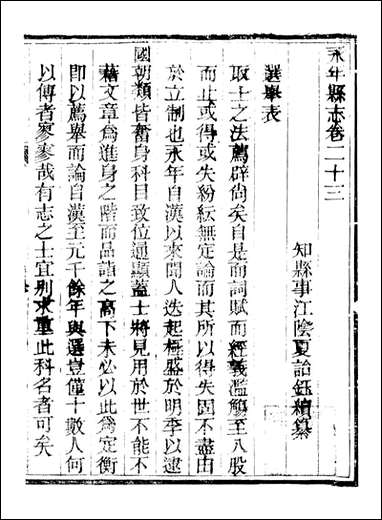 永年縣志卷二十三
知縣事江陰夏詒鈺續纂
選舉表
取士之法薦辟尙矣自是而詞賦而經義濫觴至八股
而止或得或失紛紜無定論而其所以得失固不盡由
於立制也永年自漢以來聞人迭起極盛於明季以逮
國朝類皆奮身科目致位通顯蓋士將見用於世不能不
藉文章爲進身之階而品詣之高下未必以此爲定衡
即以薦舉而論自漢至元千餘年與選豈僅十數人何
以傳者寥寥哉有志之士宜別求重此科名者可矣